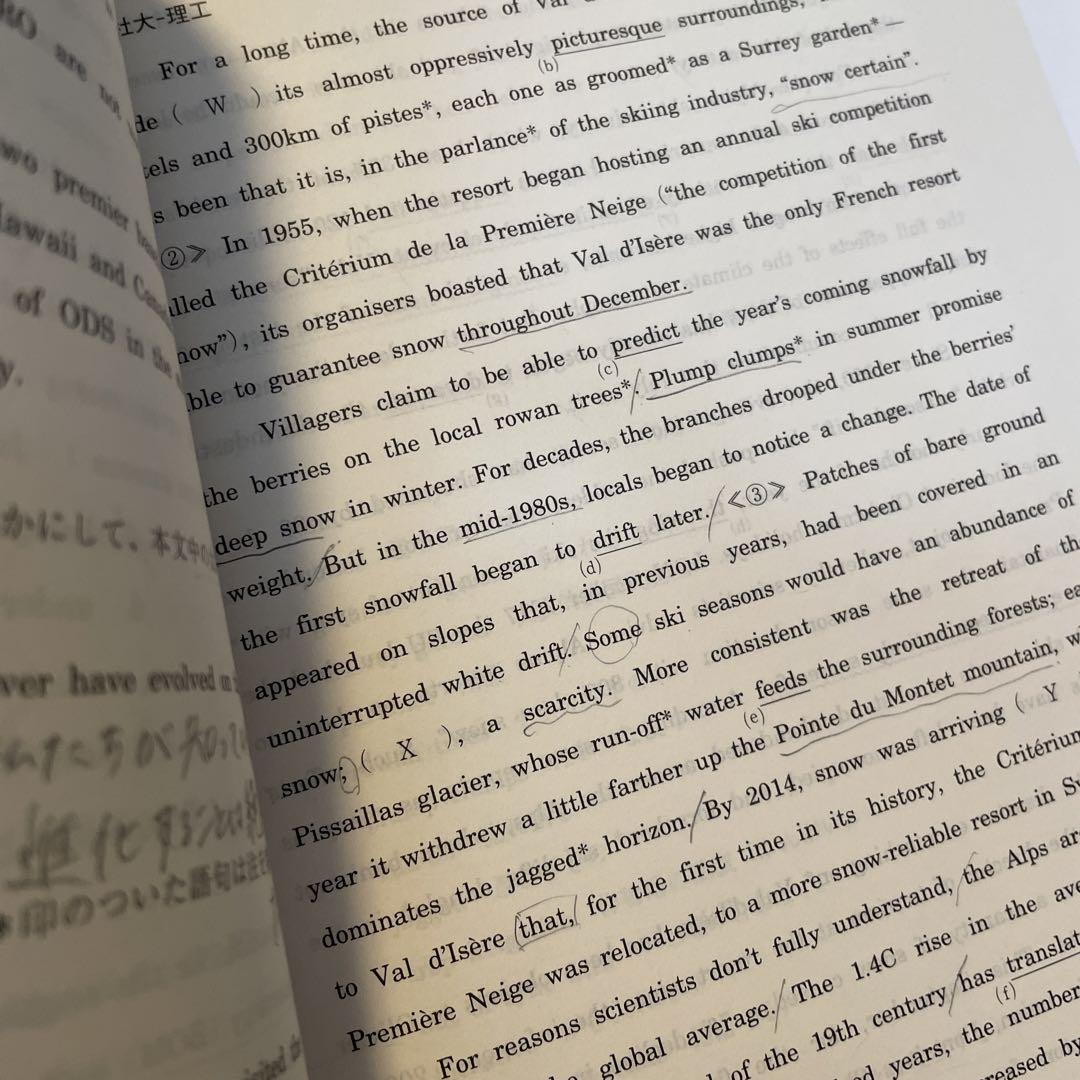 社大-理工
RO are not
two premier
Hawaii and
of ODS in the
y.
かにして、本文中の
ever have evolved
私たちが知
進化
印のついた語句は
For a long time, the source of Val
its almost oppressively picturesque surroundings,
(b)
de ( W ) its
tels and 300km of pistes*, each one as groomed* as a Surrey garden* —
s been that it is, in the parlance* of the skiing industry, “snow certain”.
≪②≫ In 1955, when the resort began hosting an annual ski competition
alled the Critérium de la Première Neige (“the competition of the first
now”), its organisers boasted that Val d’Isère was the only French resort
ble to guarantee snow throughout December.
Villagers claim to be able to predict the year’s coming snowfall by
(c)
the berries on the local rowan trees*. Plump clumps* in summer promise
deep snow in winter. For decades, the branches drooped under the berries’
weight. But in the mid-1980s, locals began to notice a change. The date of
the first snowfall began to drift later. ≪③≫ Patches of bare ground
(d)
appeared on slopes that, in previous years, had been covered in an
uninterrupted white drift. Some ski seasons would have an abundance of
snow; ( X ), a scarcity. More consistent was the retreat of the
Pissaillas glacier, whose run-off* water feeds the surrounding forests;
(e)
year it withdrew a little farther up the Pointe du Montet mountain,
dominates the jagged* horizon. By 2014, snow was arriving ( Y
to Val d’Isère that, for the first time in its history, the Critérium
Première Neige was relocated, to a more snow-reliable resort in
For reasons scientists don’t fully understand, the Alps
global average. The 1.4C rise in the
of the 19th century has
(f)
years, the number
by